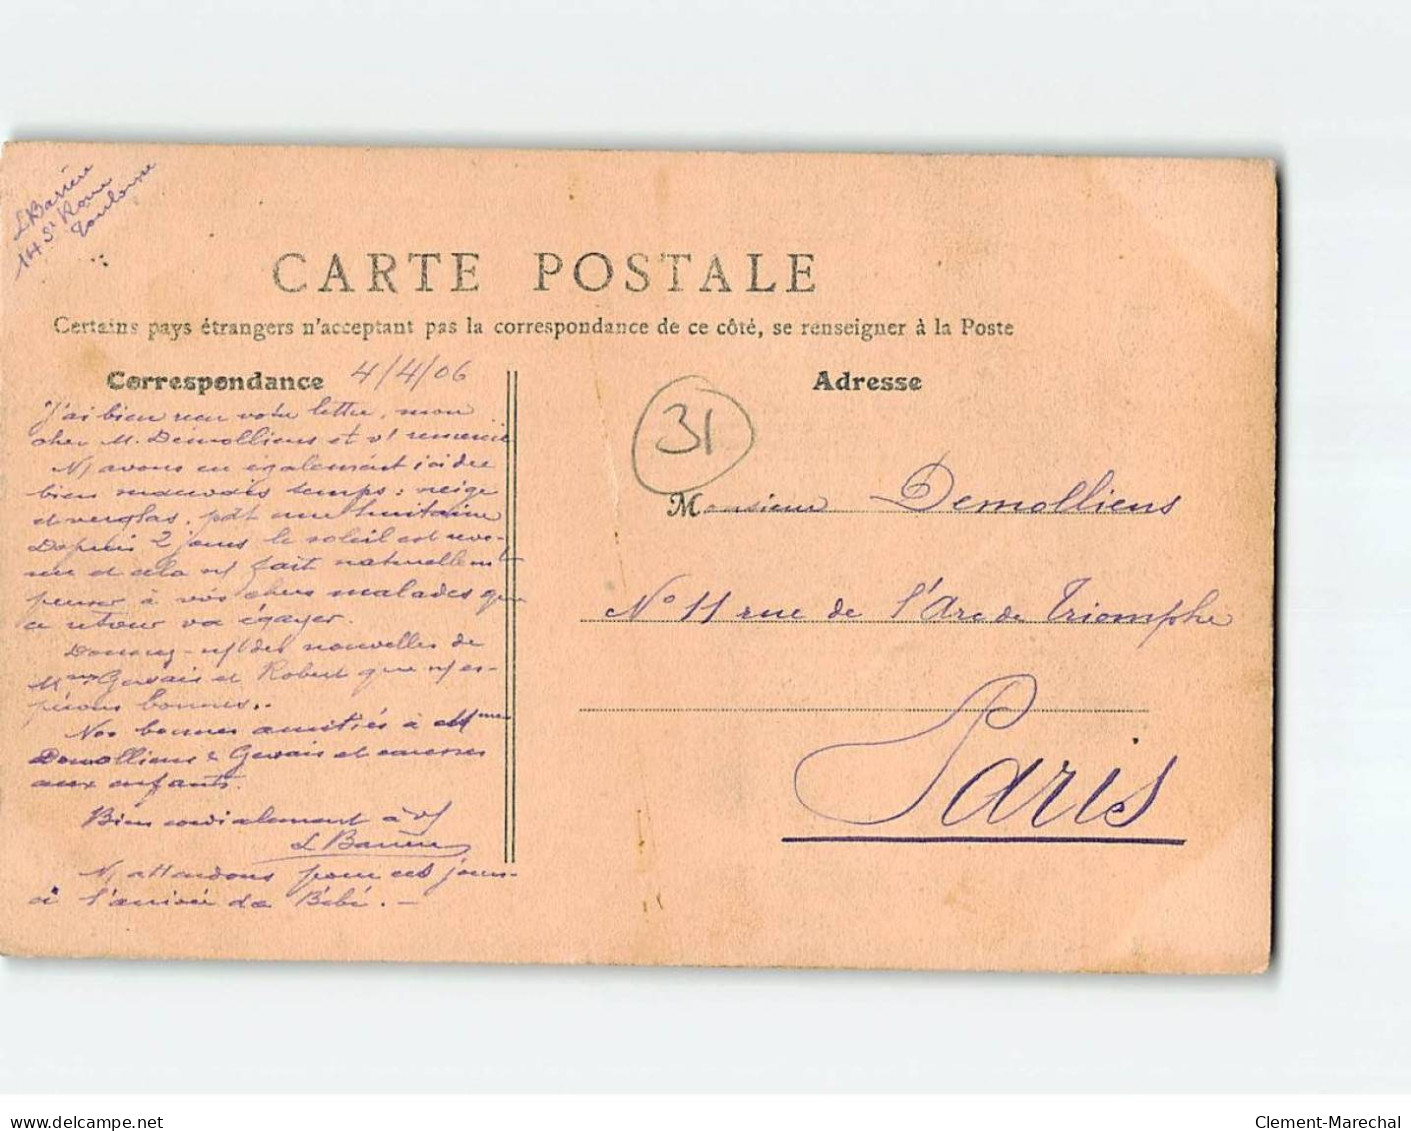 L Barrière
14 St Rome
Toulouse
CARTE POSTALE
Certains pays étrangers n'acceptant pas la correspondance de ce côté, se renseigner à la Poste
Correspondance 4/4/06
J'ai bien reçu votre lettre, mon
cher M. Demolliens et vs remercie
Ns avons eu également ici du
bien mauvais temps : neige
et verglas, pdt une huitaine
Depuis 2 jours le soleil est reve-
nu et cela ns fait naturellemt
penser à vos chers malades que
ce retour va égayer.
Donnez-ns des nouvelles de
Mme Gervais et Robert que ns es-
pérons bonnes..
Nos bonnes amitiés à Mmes
Demolliens & Gervais et caresses
aux enfants.
Bien cordialement à vs
L Barrière
Ns attendons pour ces jours-
ci l'arrivée de Bébé. -
Adresse
31
Monsieur Demolliens
No 11 rue de l'Arc de Triomphe
Paris
delcampe.net
Clement-Marechal